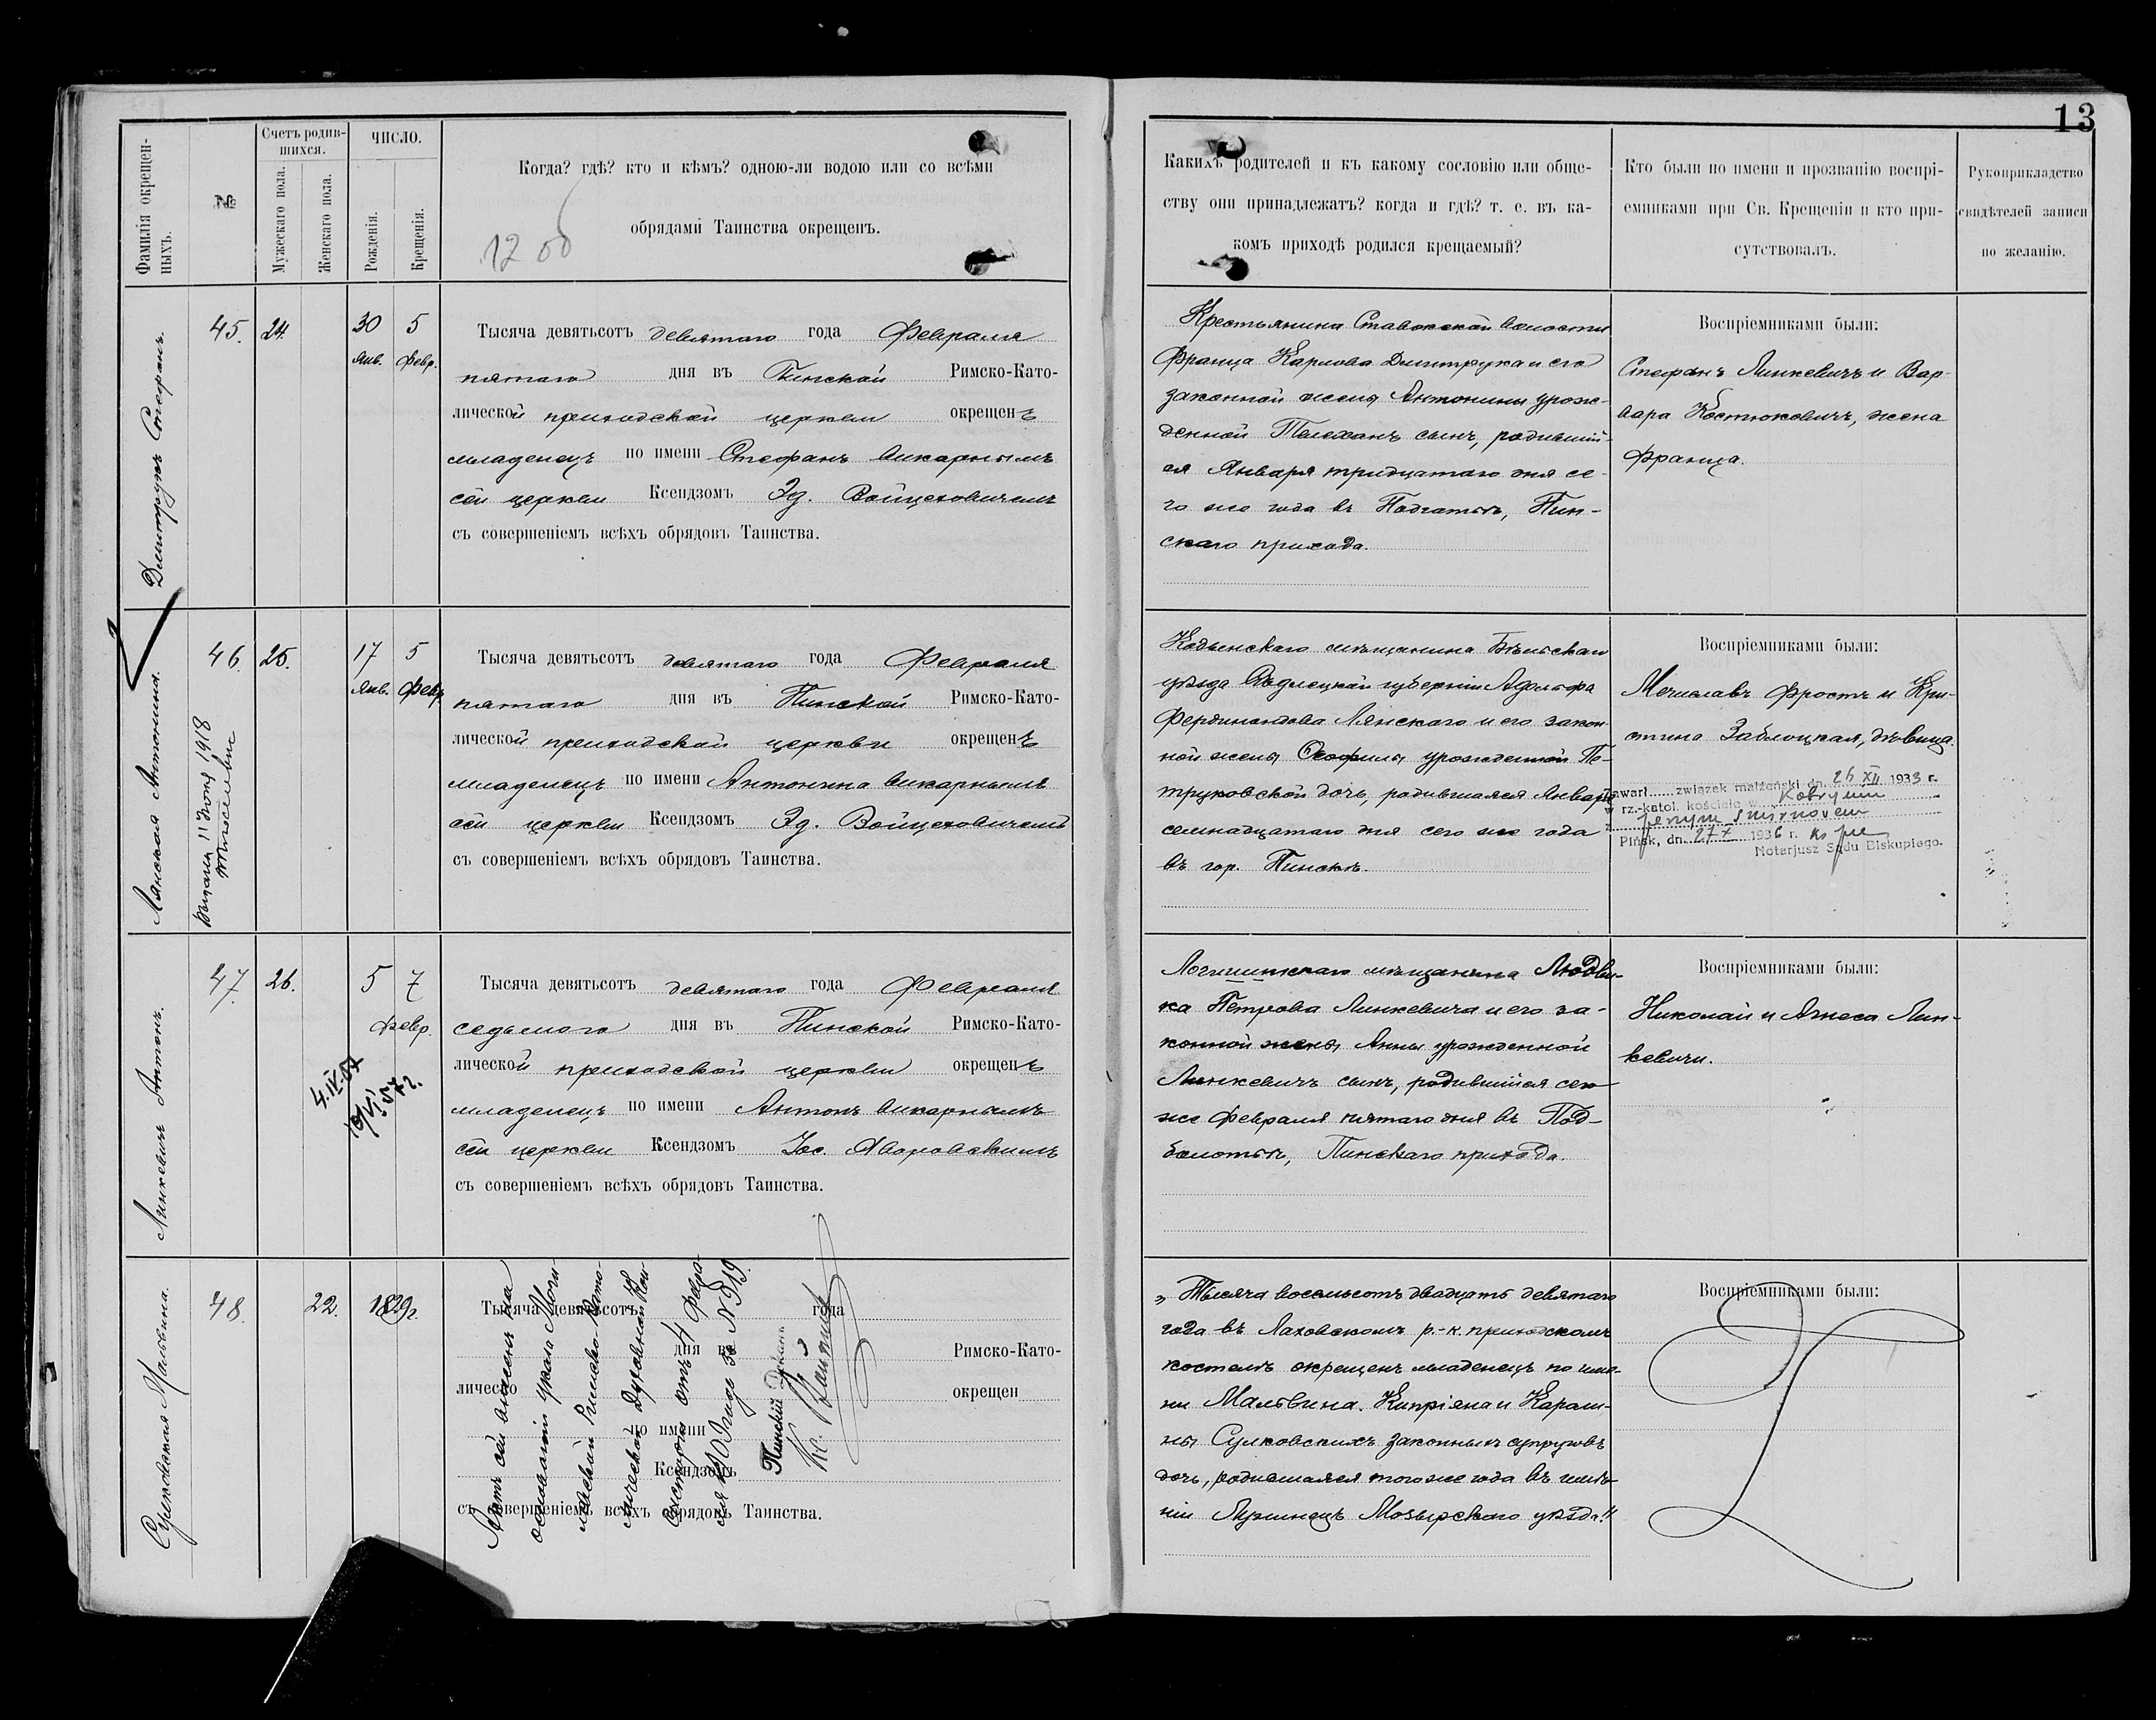 13
Фамилія окрещен-
ныхъ.
№
Счетъ родив-
шихся.
Мужескаго пола.
Женскаго пола.
ЧИСЛО.
Рожденія.
Крещенія.
Когда? гдѣ? кто и кѣмъ? одною-ли водою или со всѣми
обрядами Таинства окрещенъ.
1200
Какихъ родителей и къ какому сословію или обще-
ству они принадлежатъ? когда и гдѣ? т. е. въ ка-
комъ приходѣ родился крещаемый?
Кто были по имени и прозванію воспрі-
емниками при Св. Крещеніи и кто при-
сутствовалъ.
Рукоприкладство
свидѣтелей записи
по желанію.
Дмитрукъ Стефанъ.
45.
24.
30 5
Янв. Февр.
Тысяча девятьсотъ девятаго года Февраля
пятаго дня въ Пинской Римско-Като-
лической приходской церкви окрещенъ
младенецъ по имени Стефанъ викарнымъ
сей церкви Ксендзомъ Эд. Войцеховичемъ
съ совершеніемъ всѣхъ обрядовъ Таинства.
Крестьянина Ставокской волости
Франца Карлова Дмитрука и его
законной жены Антонины урож-
денной Телеханъ сынъ, родивший-
ся Января тридцатаго дня се-
го же года въ Подгатьѣ, Пин-
скаго прихода.
Воспріемниками были:
Стефанъ Линкевичъ и Вар-
вара Костюковичъ, жена
Франца.
Лянская Антонина.
46.
25.
17 5
Янв. Февр.
11 1918
Тысяча девятьсотъ девятаго года Февраля
пятаго дня въ Пинской Римско-Като-
лической приходской церкви окрещенъ
младенецъ по имени Антонина викарнымъ
сей церкви Ксендзомъ Эд. Войцеховичемъ
съ совершеніемъ всѣхъ обрядовъ Таинства.
Кодненскаго мѣщанина Бѣльскаго
уѣзда Сѣдлецкой губерніи Адольфа
Фердинандова Лянскаго и его закон-
ной жены Теофилы урожденной Пе-
труковской дочь, родившаяся Января
семнадцатаго дня сего же года
въ гор. Пинскѣ.
Воспріемниками были:
Мечиславъ Фростъ и Кри-
стина Заблоцкая, дѣвица.
zawarł związek małżeński dn. 26 XII 1933 r.
w rz.-katol. kościele w Kobryniu
z Jerzym Smirnovem
Pińsk, dn. 27 X 1936 r.
Notarjusz Sądu Biskupiego.
Линкевичъ Антонъ.
47.
26.
5 7
Февр.
4.IV.57
57 г.
Тысяча девятьсотъ девятаго года Февраля
седьмого дня въ Пинской Римско-Като-
лической приходской церкви окрещенъ
младенецъ по имени Антонъ викарнымъ
сей церкви Ксендзомъ Іос. Яворовскимъ
съ совершеніемъ всѣхъ обрядовъ Таинства.
Логишинскаго мѣщанина Людви-
ка Петрова Линкевича и его за-
конной жены Анны урожденной
Линкевичъ сынъ, родившійся сего
же Февраля пятаго дня въ Под-
болотьѣ, Пинскаго прихода.
Воспріемниками были:
Николай и Агнеса Лин-
кевичи.
Сулковская Мальвина.
48.
22.
1829 г.
Тысяча девятьсотъ года
дня въ Римско-Като-
лическо окрещен
по имени
Ксендзомъ
съ совершеніемъ всѣхъ обрядовъ Таинства.
Актъ сей внесенъ на
основаніи указа Моги-
левской Римско-Като-
лической Духовной Кон-
систоріи отъ 4 Февра-
ля 1909 года за № 519.
Пинскій Деканъ
Кс.
„Тысяча восемьсотъ двадцать девятаго
года въ Лаховскомъ р.-к. приходскомъ
костелѣ окрещенъ младенецъ по име-
ни Мальвина. Кипріяна и Кароли-
ны Сулковскихъ законныхъ супруговъ
дочь, родившаяся того же года въ имѣ-
ніи Лунинецъ Мозырскаго уѣзда."
Воспріемниками были: